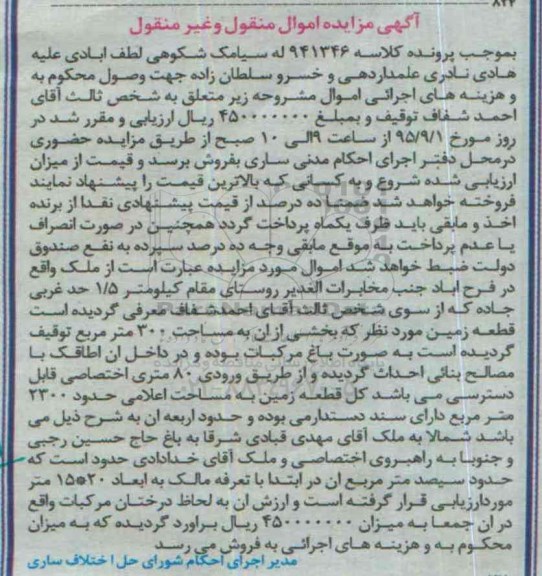 ۸۲۴
آگهی مزایده اموال منقول وغیر منقول
بموجب پرونده کلاسه ۹۴۱۳۴۶ له سیامک شکوهی لطف ابادی علیه
هادی نادری علمداردهی و خسرو سلطان زاده جهت وصول محکوم به
و هزینه های اجرائی اموال مشروحه زیر متعلق به شخص ثالث آقای
احمد شفاف توقیف و بمبلغ ۴۵۰۰۰۰۰۰۰۰ ریال ارزیابی و مقرر شد در
روز مورخ ۹۵/۹/۱ از ساعت ۹الی ۱۰ صبح از طریق مزایده حضوری
درمحل دفتر اجرای احکام مدنی ساری بفروش برسد و قیمت از میزان
ارزیابی شده شروع و به کسانی که بالاترین قیمت را پیشنهاد نمایند
فروخته خواهد شد ضمنا ده درصد از قیمت پیشنهادی نقدا از برنده
اخذ و مابقی باید ظرف یکماه پرداخت گردد همچنین در صورت انصراف
یا عدم پرداخت به موقع مابقی وجه ده درصد سپرده به نفع صندوق
دولت ضبط خواهد شد اموال مورد مزایده عبارت است از ملک واقع
در فرح اباد جنب مخابرات الغدیر روستای مقام کیلومتر ۱/۵ حد غربی
جاده که از سوی شخص ثالث آقای احمدشفاف معرفی گردیده است
قطعه زمین مورد نظر که بخشی از ان به مساحت ۳۰۰ متر مربع توقیف
گردیده است به صورت باغ مرکبات بوده و در داخل ان اطاقک با
مصالح بنائی احداث گردیده و از طریق ورودی ۸۰ متری اختصاصی قابل
دسترسی می باشد کل قطعه زمین به مساحت اعلامی حدود ۲۳۰۰
متر مربع دارای سند دستدارمی بوده و حدود اربعه ان به شرح ذیل می
باشد شمالا به ملک آقای مهدی قبادی شرقا به باغ حاج حسین رجبی
و جنوبا به راهبروی اختصاصی و ملک آقای خدادادی حدود است که
حدود سیصد متر مربع ان در ابتدا با تعرفه مالک به ابعاد ۲۰*۱۵ متر
موردارزیابی قرار گرفته است و ارزش ان به لحاظ درختان مرکبات واقع
در ان جمعا به میزان ۴۵۰۰۰۰۰۰۰۰ ریال براورد گردیده که به میزان
محکوم به و هزینه های اجرائی به فروش می رسد
مدیر اجرای احکام شورای حل اختلاف ساری